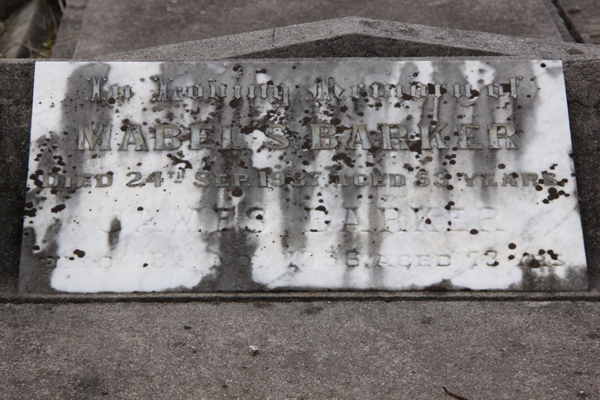 In Loving Memory of
MABEL S. BARKER
DIED 24TH SEP 1937 AGED 53 YEARS
JAMES BARKER
DIED AGED 73 YRS